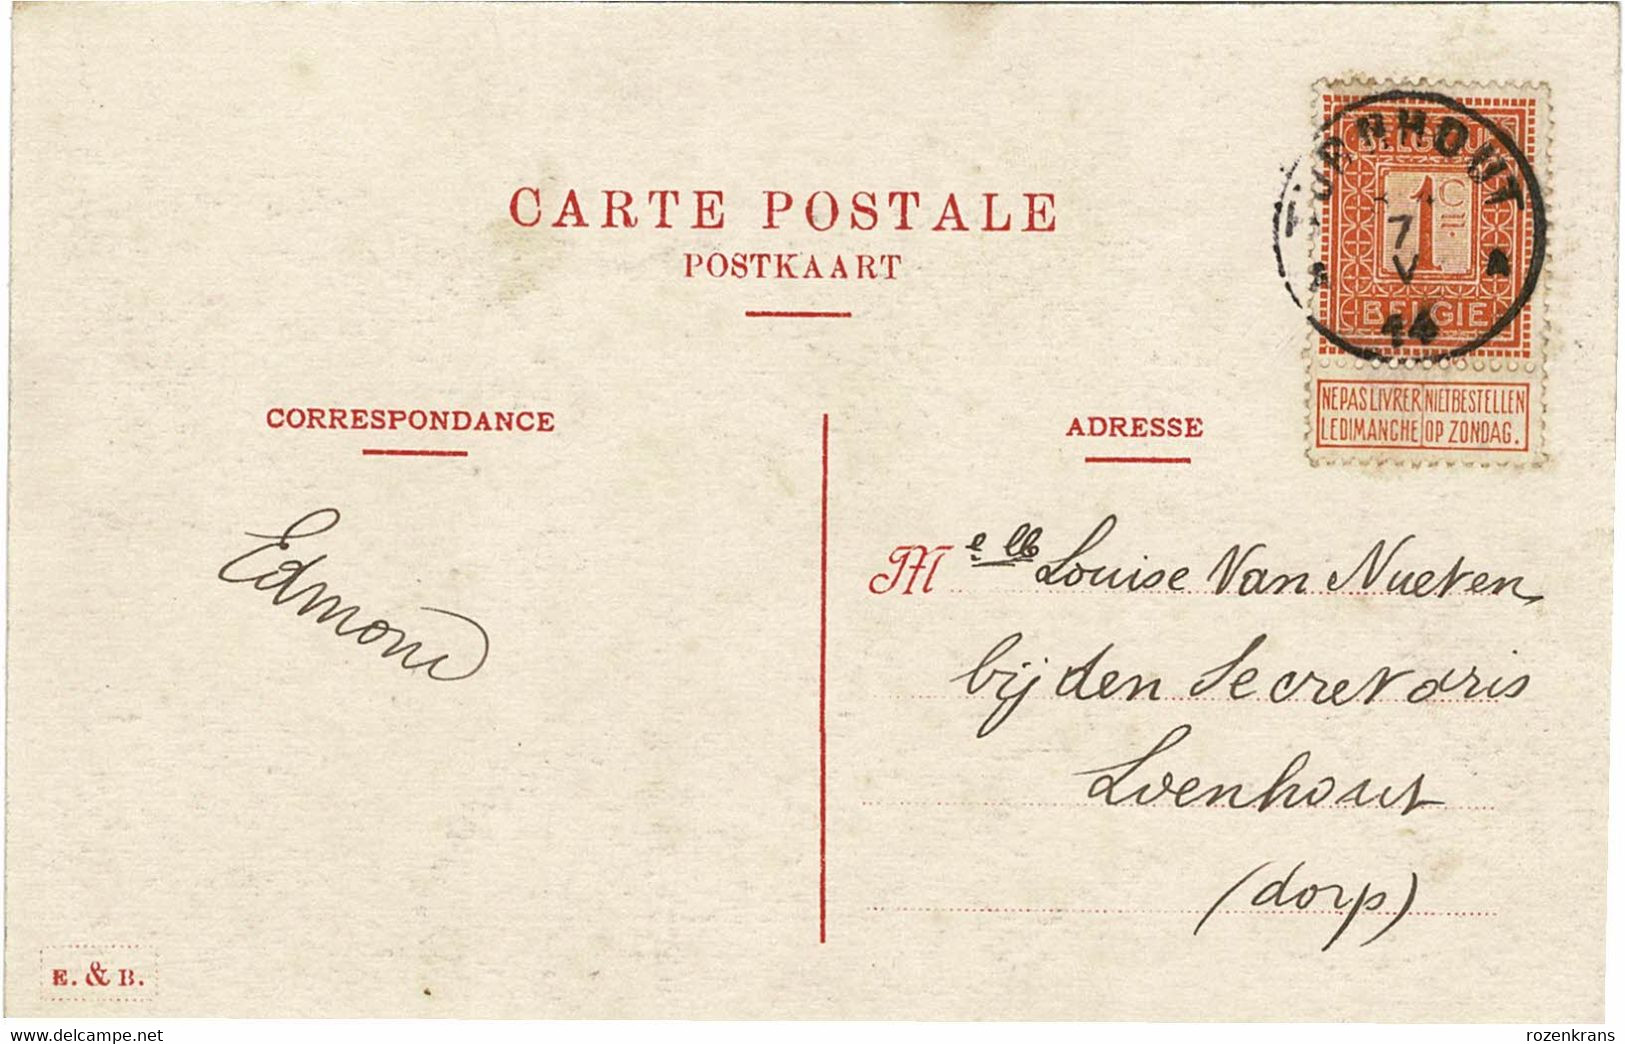 CARTE POSTALE
POSTKAART
TURNHOUT
7
V
14
BELGIQUE
1 C
BELGIE
NE PAS LIVRER NIET BESTELLEN
LE DIMANCHE OP ZONDAG.
CORRESPONDANCE
ADRESSE
Edmond
M elle Louise Van Nueten
bij den Secretaris
Loenhout
(dorp)
E. & B.
delcampe.net
rozenkrans